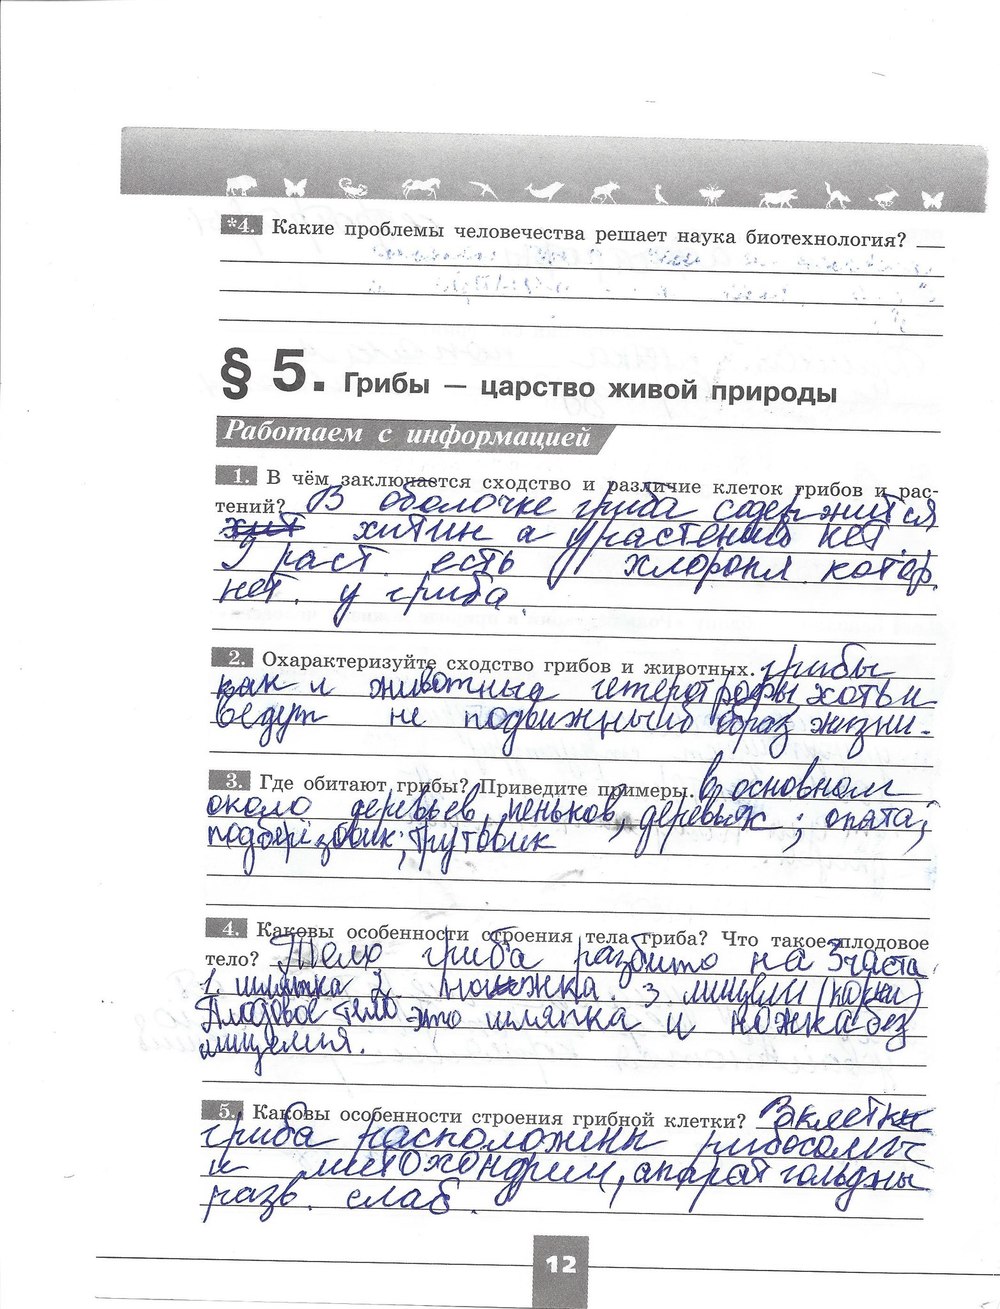 *4. Какие проблемы человечества решает наука биотехнология?
§ 5. Грибы — царство живой природы
Работаем с информацией
1. В чём заключается сходство и различие клеток грибов и рас-
тений? В оболочке гриба содержится
хит хитин а у растений нет.
У раст. есть хлоропл. котор.
нет. у гриба.
2. Охарактеризуйте сходство грибов и животных. грибы
как и животные гетеротрофы хоть и
ведут не подвижный образ жизни.
3. Где обитают грибы? Приведите примеры. в основном
около деревьев, пеньков, деревьях; опята;
подберёзовик; трутовик
4. Каковы особенности строения тела гриба? Что такое плодовое
тело? Тело гриба разбито на 3 части
1. шляпка 2. ножка. 3. мицелий (корни)
Плодовое тело - это шляпка и ножка без
мицелия.
5. Каковы особенности строения грибной клетки? В клетки
гриба расположены рибосомы
и митохондрии, апарат гольджы
разв. слаб.
12